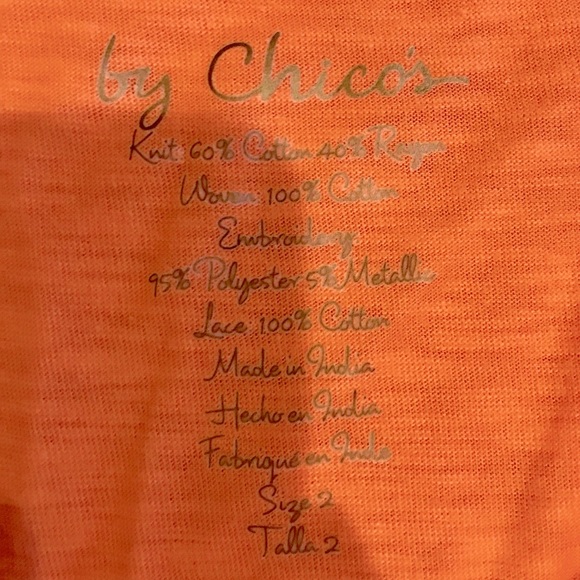 by Chico's
Knit 60% Cotton 40% Rayon
Woven 100% Cotton
Embroidery
95% Polyester 5% Metallic
Lace 100% Cotton
Made in India
Hecho en India
Fabriqué en Inde
Size 2
Talla 2